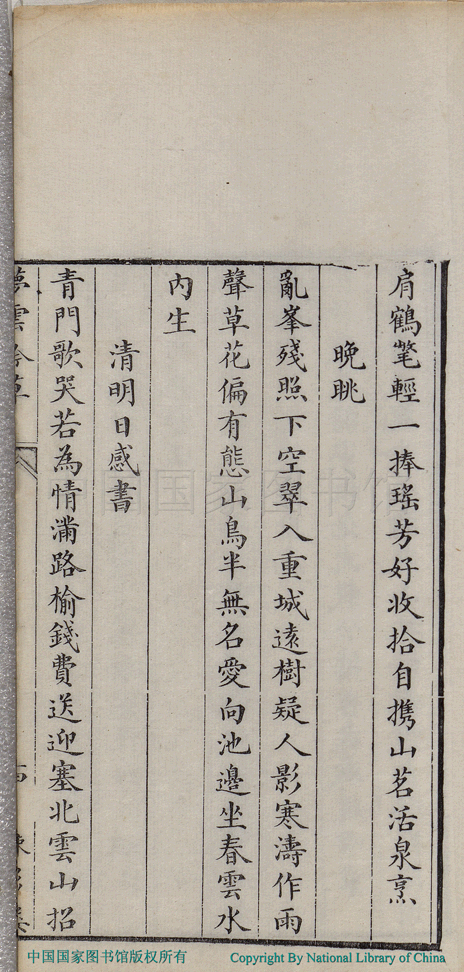 肩鶴氅輕一捧瑤芳好收拾自携山茗活泉烹
晚眺
亂峯殘照下空翠入重城遠樹疑人影寒濤作雨
聲草花偏有態山鳥半無名愛向池邊坐春雲水
内生
清明日感書
青門歌哭若為情滿路榆錢費送迎塞北雲山招
中国国家图书馆
中国国家图书馆版权所有
Copyright By National Library of China